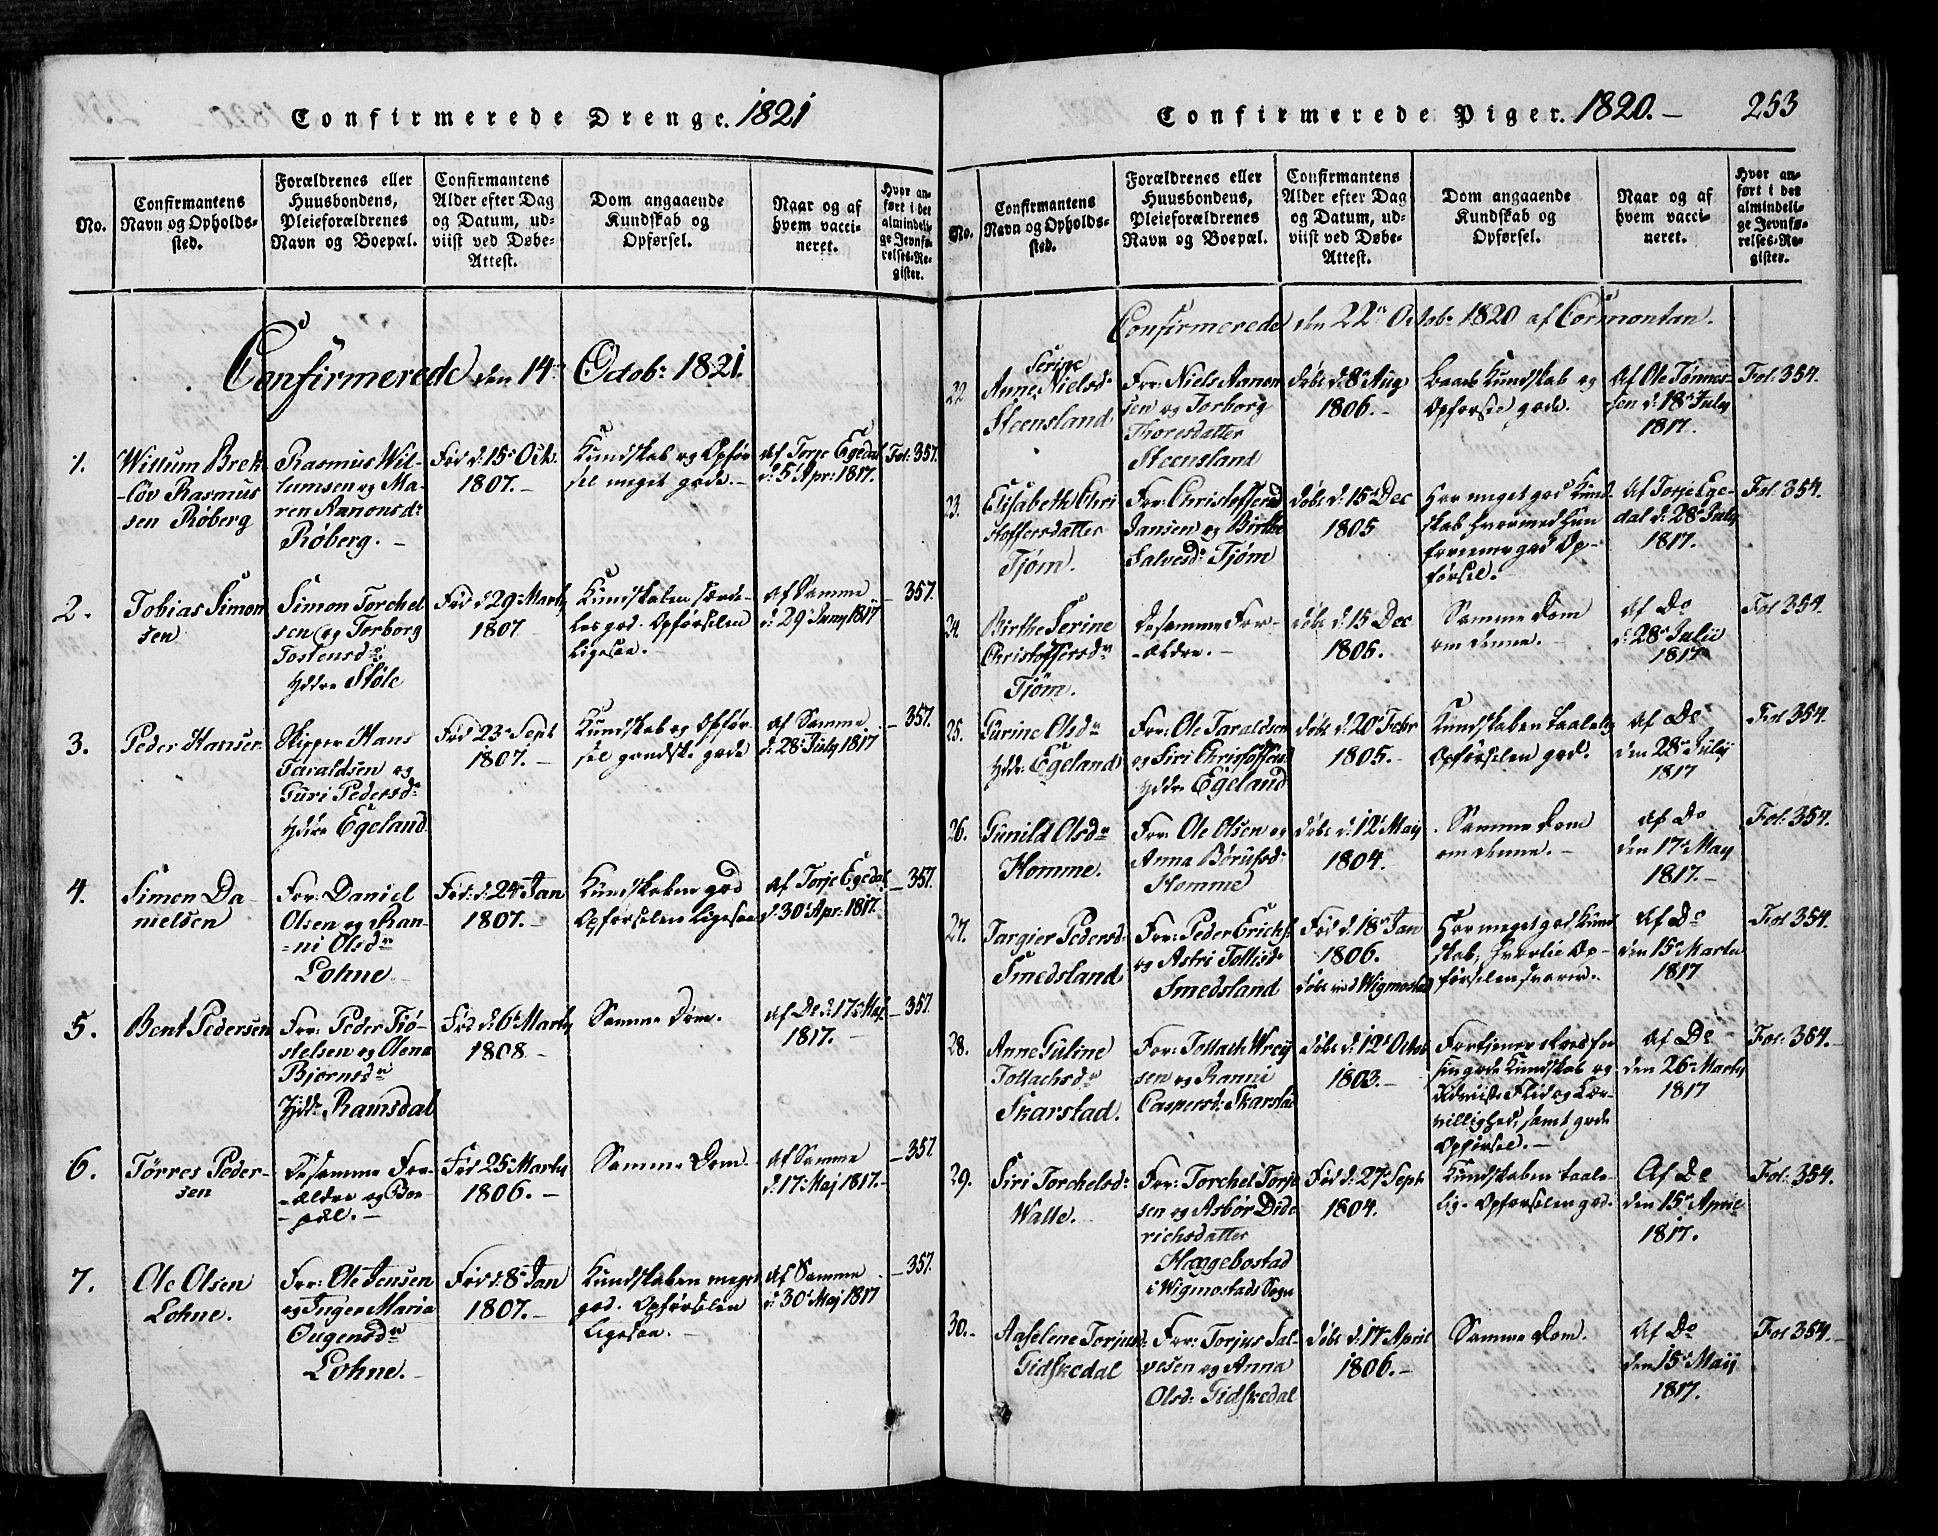 Confirmerede Drenge. 1821
No.
Confirmantens
Navn og Opholds-
sted.
Forældrenes eller
Huusbondens,
Pleieforældrenes
Navn og Boepæl.
Confirmantens
Alder efter Dag
og Datum, ud-
viist ved Døbe-
Attest.
Dom angaaende
Kundskab og
Opførsel.
Naar og af
hvem vacci-
neret.
Hvor an-
ført i det
almindeli-
ge Jevnfø-
relses-Re-
gister.
Confirmerede den 14de Octob: 1821.
1.
Willum Brek
løv Rasmus
sen Røberg
Rasmus Wil-
lumsen og Ma-
ren Aanonsdr
Røberg. –
Fød d: 15de Oct.
1807. –
Kundskab og Opfør
sel meget gode. –
Af Torje Egedal
d: 5 Apr: 1817.
Fol: 357.
2.
Tobias Simon
sen
Simon Torchel
sen og Torborg
Tostensdr
Ydre Støle
Fød d 29 Marty
1807.
Kundskaben særde-
les god. Opførselen
ligesaa. –
af Samme
d: 29 Juny 1817
357.
3.
Peder Hansen
Skipper Hans
Taraldsen og
Guri Pedersdr
Ydre Egeland.
Fød 23de Sept
1807. –
Kundskab og Opfør
sel gandske gode
af Samme
d: 28de July 1817
357.
4.
Simon Da-
nielsen
For: Daniel
Olsen og Ran-
ni Olsdr
Lohne
Fød: d: 24de Jan
1807. –
Kundskaben god
Opførselen ligesaa
af Torje Egedal
d. 30 Apr: 1817.
357.
5.
Bent Pedersen
For: Peder Tiø-
stelsen og Olena
Bjornsdr
Ydr Ramsdal
Fød d: 6te Marty
1808 –
Samme Dom.
af Do d: 17de Maj
1817. –
357.
6.
Tørres Peder-
sen
De samme For-
ældre og Boe
pæl. –
Fød 25 Marty
1806. –
Samme Dom
af Samme
d: 17de Maj 1817. –
357.
7.
Ole Olsen
Lohne.
For: Ole Jensen
og Inger Maria
Ougensdr
Lohne.
Fød d: 8de Jan
1807. –
Kundskaben meget
god. Opførselen
ligesaa. –
af Samme
d: 30 Maj 1817
357.
Confirmerede Piger. 1820. –
253
No.
Confirmantens
Navn og Opholds-
sted.
Forældrenes eller
Huusbondens,
Pleieforældrenes
Navn og Boepæl.
Confirmantens
Alder efter Dag
og Datum, ud-
viist ved Døbe-
Attest.
Dom angaaende
Kundskab og
Opførsel.
Naar og af
hvem vacci-
neret.
Hvor an-
ført i det
almindeli-
ge Jevnfø-
relses-Re-
gister.
Confirmerede den 22de Octob: 1820 af Cormontan.
22
Serine
Anne Nielsdr
Steensland
For: Niels Aanon
sen og Torborg
Thoresdatter
Steensland
døbt d: 8de Aug
1806. –
Baade Kundskab og
Opførsel gode.
Af Ole Tønnes-
sen d: 18de July
1817.
Fol: 354.
23.
Elisabeth Chri
stoffersdatter
Tjøm.
For: Christoffer
Jansen og Birthe
Salvesdr Tjøm
døbt d: 15de Dec
1805
Har meget god Kund
skab hvormed hun
forener god Op-
førsel. –
Af Torje Ege-
dal d: 28de July
1817.
Fol: 354.
24.
Birthe Serine
Christoffersdr
Tjøm.
De samme For-
ældre. –
døbt d: 15 Dec
1805.
Samme Dom
om denne. –
af Do
d: 28de Julii
1817
Fol 354.
25.
Gurine Olsdr
Ydr: Egeland
For: Ole Taraldsen
og Siri Christoffersd
Ydr. Egeland
døbt d: 20de Febr
1805. –
Kundskaben taalelig
Opførselen god.
af Do
den 28de July
1817
Fol 354.
26.
Gunild Olsdr
Homme.
For: Ole Olsen og
Anna Børufsdr
Homme
døbt d: 12te May
1804. –
Samme Dom
om denne. –
af Do
den 17de May
1817. –
Fol: 354.
27.
Targier Pedersd
Smedsland
For: Peder Erichs.
og Astri Tollisdr
Smedsland
Fød d: 18de Jan
1806.
døbt ved Wigmostad
Har meget god Kund
skab, hvortil Op-
førselen svarer.
af Do
den 15de Marty
1817
Fol 354.
28.
Anne Guline
Tollachsdr
Skarstad.
For: Tollach Wrey
sen og Ranni
Caspersd: Skarstad
døbt d: 12te Octob
1803. –
Fortjener Roes for
sin gode Kundskab og
udviste Flid og Lær-
villighed, samt gode
Opførsel. –
Af Do
den 26de Marty
1817
Fol: 354.
29.
Siri Torchelsdr
Walle.
For: Torchel Torje
sen og Asbør Dide
richsdatter
Hæggebostad
i Wigmostads Sogn
Fød d: 27de Septr
1804.
Kundskaben taale-
lig. Opførselen god.
Af Do
den 15de April
1817.
Fol: 354.
30. –
Aaselene Torjusd:
Gidskedal
For: Torjus Sal-
vesen og Anna
Olsd: Gidskedal
døbt d: 17de April
1806. –
Samme Dom.
Af Do
den 15de Maij
1817.
Fol 354. –